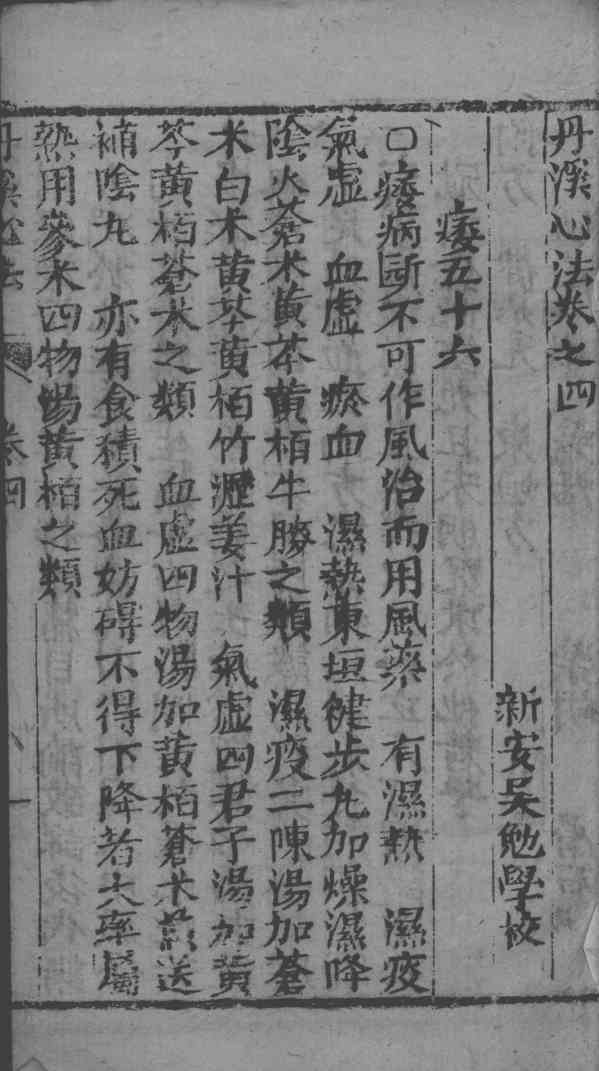 丹溪心法卷之四
新安吳勉學校
痿五十六
○痿病斷不可作風治而用風藥 有濕熱 濕痰
氣虛 血虛 瘀血 濕熱東垣健步丸加燥濕降
陰火蒼术黃芩黃栢牛膝之類 濕痰二陳湯加蒼
术白术黃芩黃栢竹瀝姜汁 氣虛四君子湯加黃
芩黃栢蒼术之類 血虛四物湯加黃栢蒼术煎送
補陰丸 亦有食積死血妨碍不得下降者大率屬
熱用參术四物湯黃栢之類
丹溪心法 卷四 一